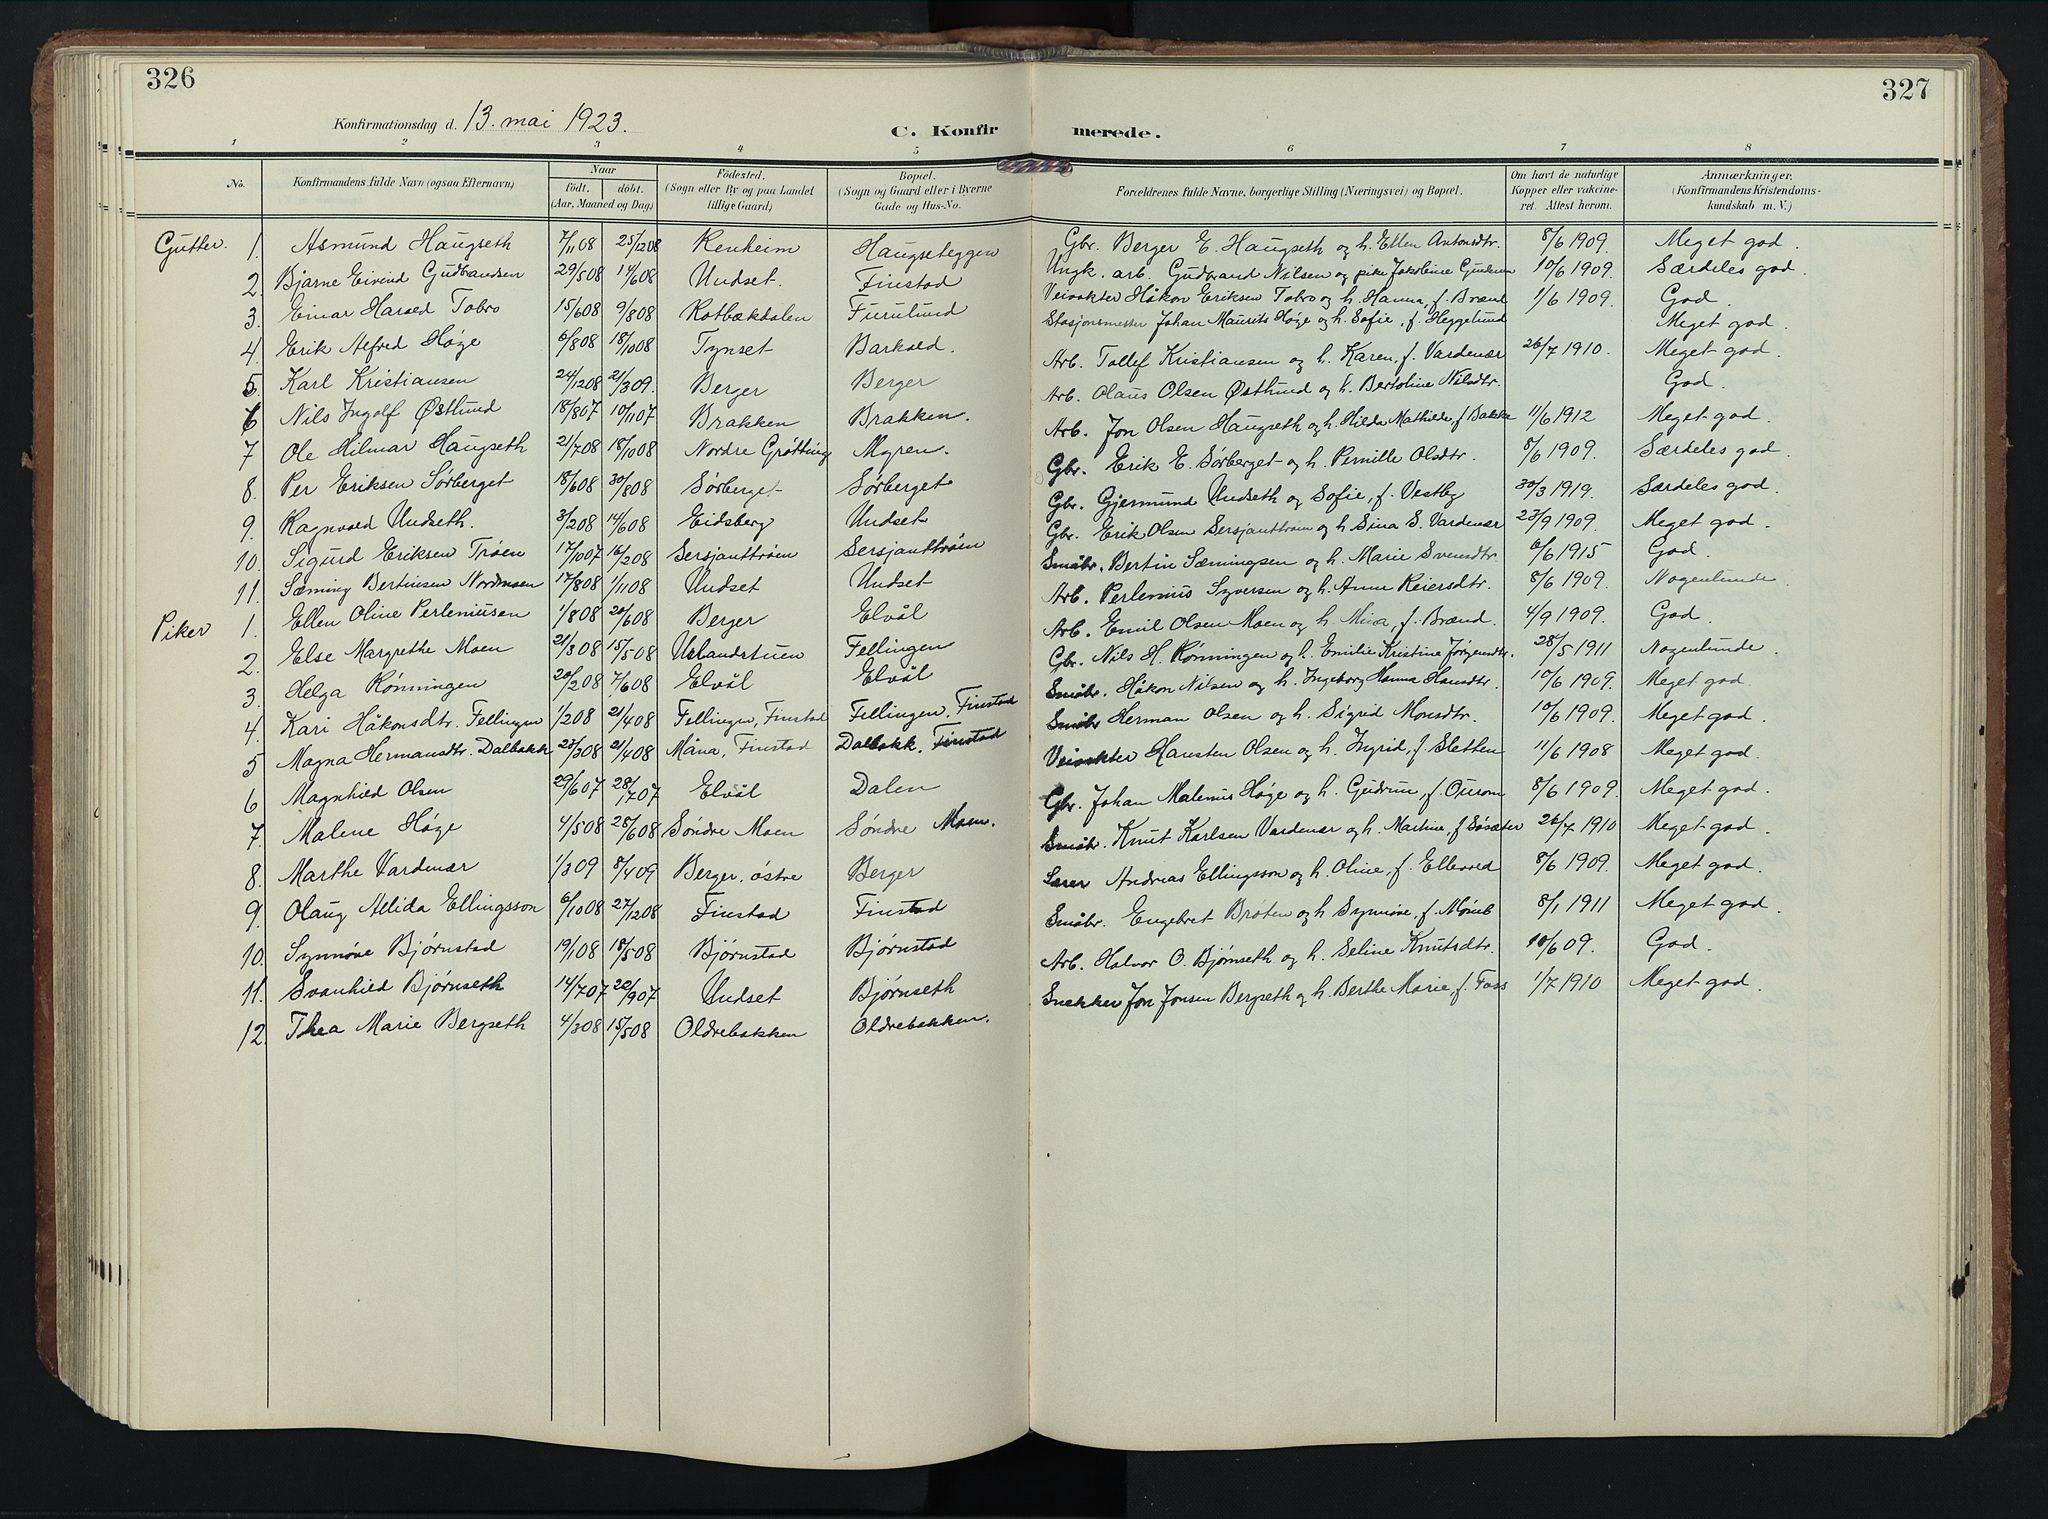 326
327
Konfirmationsdag d. 13. mai 1923.
C. Konfirmerede.
1 2 3 4 5 6 7 8
No. Konfirmandens fulde Navn (ogsaa Efternavn) Naar Født. døbt. (Aar, Maaned og Dag) Fødested. (Sogn eller By og paa Landet tillige Gaard) Bopæl. (Sogn og Gaard eller i Byerne Gade og Hus-No. Forældrenes fulde Navne, borgerlige Stilling (Næringsvei) og Bopæl. Om havt de naturlige Kopper eller vakcineret. Attest herom. Anmærkninger. (Konfirmandens Kristendomskundskab m. V.)
Gutter. 1. Asmund Haugseth 7/11 08 25/12 08 Renheim Haugseteggen Gbr. Berger E. Haugseth og h. Ellen Antonsdtr. 8/6 1909. Meget god.
2. Bjarne Eivind Gudbrandsen 29/5 08 14/6 08 Undset. Finstad Ungk. arb. Gudbrand Nilsen og pike Jakobine 10/6 1909. Særdeles god.
3. Einar Harald Tobro 15/6 08 9/8 08 Rotbækdalen Furulund Veivokter Håkon Eriksen Tobro og h. Hanna, f. Brænd 1/6 1909. God.
4. Erik Alfred Høge 6/8 08 18/10 08 Tynset Barkald. Stasjonsmester Johan Maurits Høge og h. Sofie, f. Heggelund Meget god.
5. Karl Kristiansen 24/12 08 21/3 09. Berger Berger Arb. Tollef Kristiansen og h. Karen, f. Vardenær 26/7 1910. Meget god.
6 Nils Ingolf Østlund 18/8 07 10/11 07 Brakken Brakken. Arb. Olaus Olsen Østlund og h. Bertoline Nilsdtr. God.
7 Ole Hilmar Haugseth 21/7 08 18/10 08 Nordre Grøtting Moren. Arb. Jon Olsen Haugseth og h. Hilda Mathilde, f. Bakke 11/6 1912 Meget god.
8. Per Eriksen Sørberget 18/6 08 30/8 08 Sørberget Sørberget Gbr. Erik E. Sørberget og h. Pernille Olsdtr. 8/6 1909. Særdeles god.
9. Ragnvald Undseth. 3/2 08 14/6 08 Eidsberg Undset Gbr. Gjermund Undseth og Sofie, f. Vestby 30/3 1919. Særdeles god.
10. Sigurd Eriksen Trøen 17/10 07 16/2 08 Sersjanttrøen Sersjanttrøen Gbr. Erik Olsen Sersjanttrøen og h. Sina S. Vardenær 23/9 1909. Meget god.
11. Sæming Bertinsen Nordmoen 17/8 08 1/11 08 Undset Undset Småbr. Bertin Sæmingsen og h. Marie Svensdtr. 6/6 1915 God.
Piker 1. Ellen Oline Perleniusen 1/8 08 20/6 08 Berger Elvål Arb. Perlenius Syversen og h. Anne Reiersdtr. 8/6 1909. Nogenlunde.
2. Else Margrethe Moen 21/3 08 15/5 08 Urlandstuen Fellingen Arb. Emil Olsen Moen og h. Mina, f. Brænd. 4/9 1909. God.
3. Helga Rønningen 20/2 08 7/6 08 Elvål Elvål Gbr. Nils H. Rønningen og h. Emilie Kristine Jørgensdtr. 28/5 1911 Nogenlunde.
4. Kari Håkonsdtr. Fellingen 1/2 08 21/4 08 Fellingen, Finstad Fellingen, Finstad Småbr. Håkon Nilsen og h. Ingeborg Hanna Hansdtr. 10/6 1909. Meget god.
5 Magna Hermansdtr. Dalbakk 23/3 08 21/4 08 Måna, Finstad Dalbakk, Finstad Småbr Herman Olsen og h. Sigrid Monsdtr. 10/6 1909. Meget god.
6 Magnhild Olsen 29/6 07 28/7 07 Elvål Dalen Veivokter Hansten Olsen og h. Ingrid, f. Sletten 11/6 1908 Meget god.
7. Malene Høge 4/5 08 28/6 08 Søndre Moen Søndre Moen. Gbr. Johan Malenus Høge og h. Gudrun, f. Ousom 8/6 1909. Meget god.
8. Marthe Vardenær 1/3 09 8/4 09 Berger, østre Berger Småbr. Knut Karlsen Vardenær og h. Martine, f. Søsæter 26/7 1910 Meget god.
9. Olaug Allida Ellingsson 6/10 08 27/12 08 Finstad Finstad Andreas Ellingsson og h. Oline, f. Ellevold 8/6 1909. Meget god.
10. Synnøve Bjørnstad 19/1 08 18/5 08 Bjørnstad Bjørnstad Småbr. Engebret Brøten og h Synnøve, f. 8/1 1911 Meget god.
11. Svanhild Bjørnseth 14/7 07 22/9 07 Undset Bjørnseth Arb. Halvor O. Bjørnseth og h. Seline Knutsdtr. 10/6 09. God.
12. Thea Marie Bergseth 4/3 08 15/5 08 Oldrebakken Oldrebakken. Snekker Jon Jonsen Bergseth og h. Berthe Marie, f. Tøss 1/7 1910 Meget god.